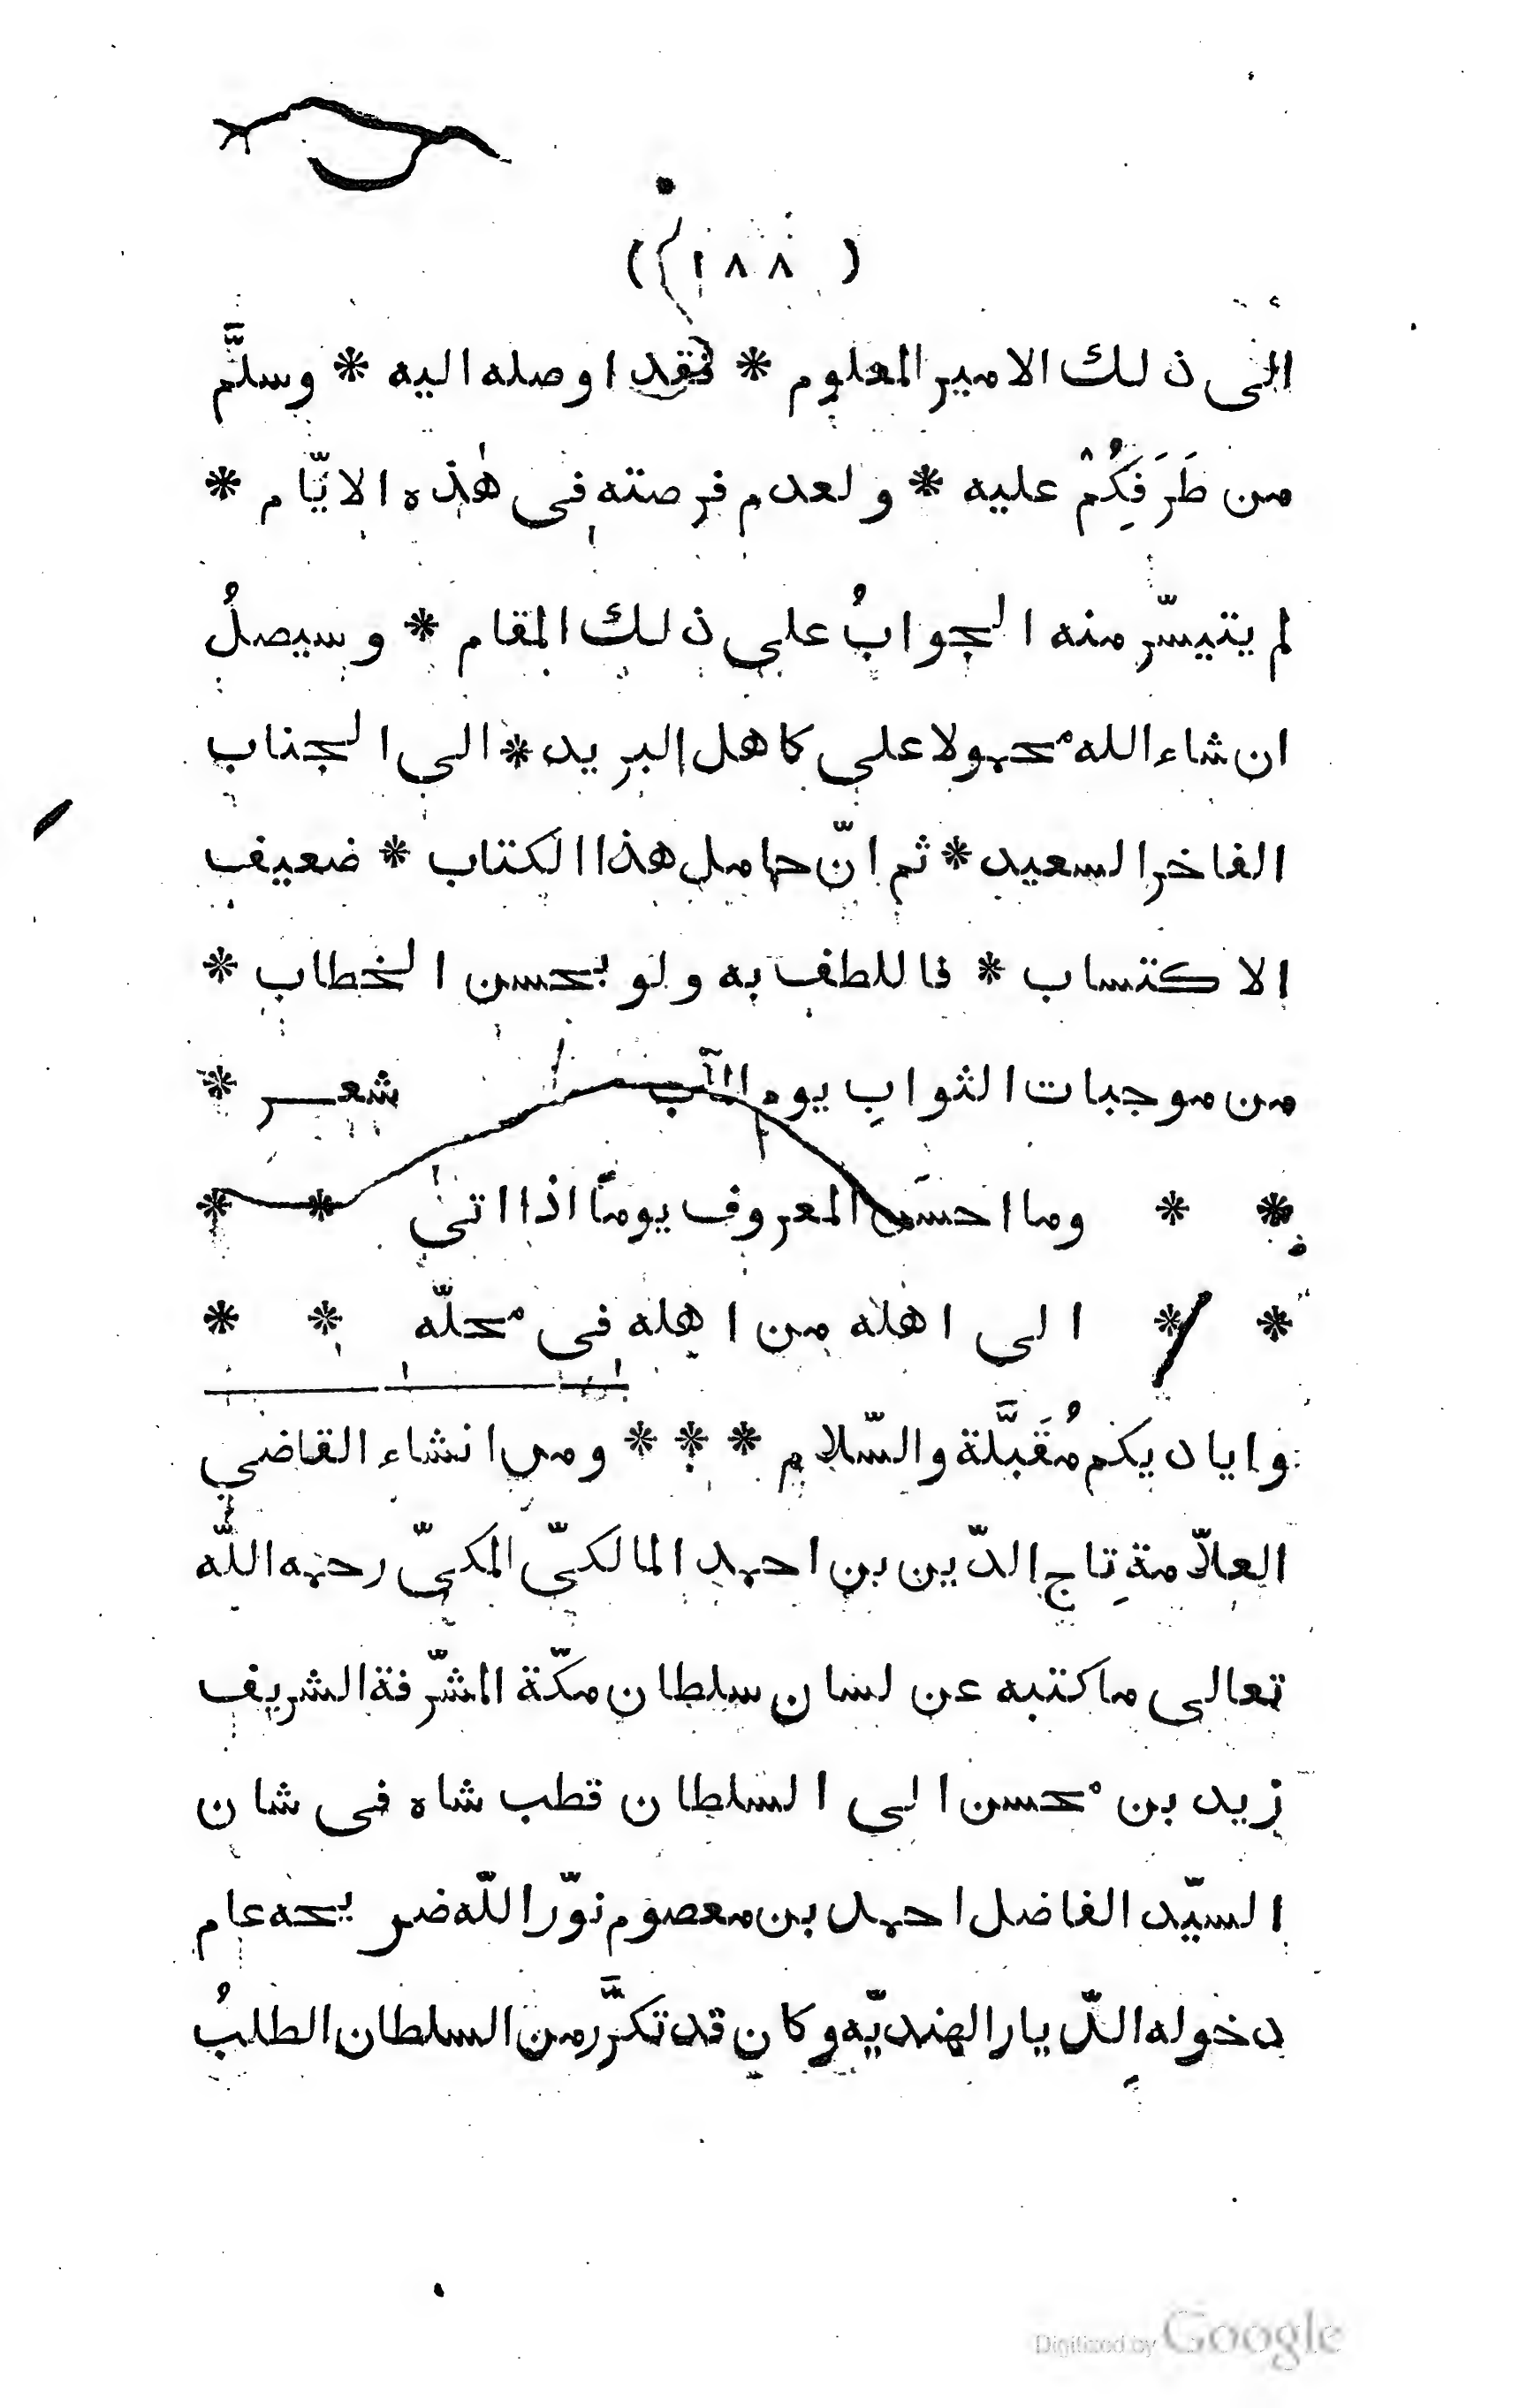 ( ١٨٨ )
الى ذلك الامير المعلوم * فقد اوصله اليه * وسلَّم
من طَرَفِكُمْ عليه * ولعدم فرصته فى هٰذه الايّام *
لم يتيسّر منه الجوابُ على ذلك المقام * وسيصلُ
ان شاء الله محمولا على كاهل البريد * الى الجناب
الفاخر السعيد * ثم انّ حامل هذا الكتاب * ضعيف
الاكتساب * فاللطف به ولو بحسن الخطاب *
من موجبات الثوابِ يوم المآب شعر *
* * وما احسن المعروف يومًا اذا اتىٰ * *
* * الى اهله من اهله فى محلّه * *
واياديكم مُقَبَّلة والسّلام * * * ومن انشاء القاضي
العلّامة تاجِ الدّين بن احمد المالكيّ المكيّ رحمه اللّٰه
تعالى ماكتبه عن لسان سلطان مكّة المشرّفة الشريف
زيد بن محسن الى السلطان قطب شاه فى شان
السيّد الفاضل احمد بن معصوم نوّر اللّه ضريحه عام
دخوله الدّيار الهنديّه وكان قد تكرَّر من السلطان الطلبُ
Digitized by Google